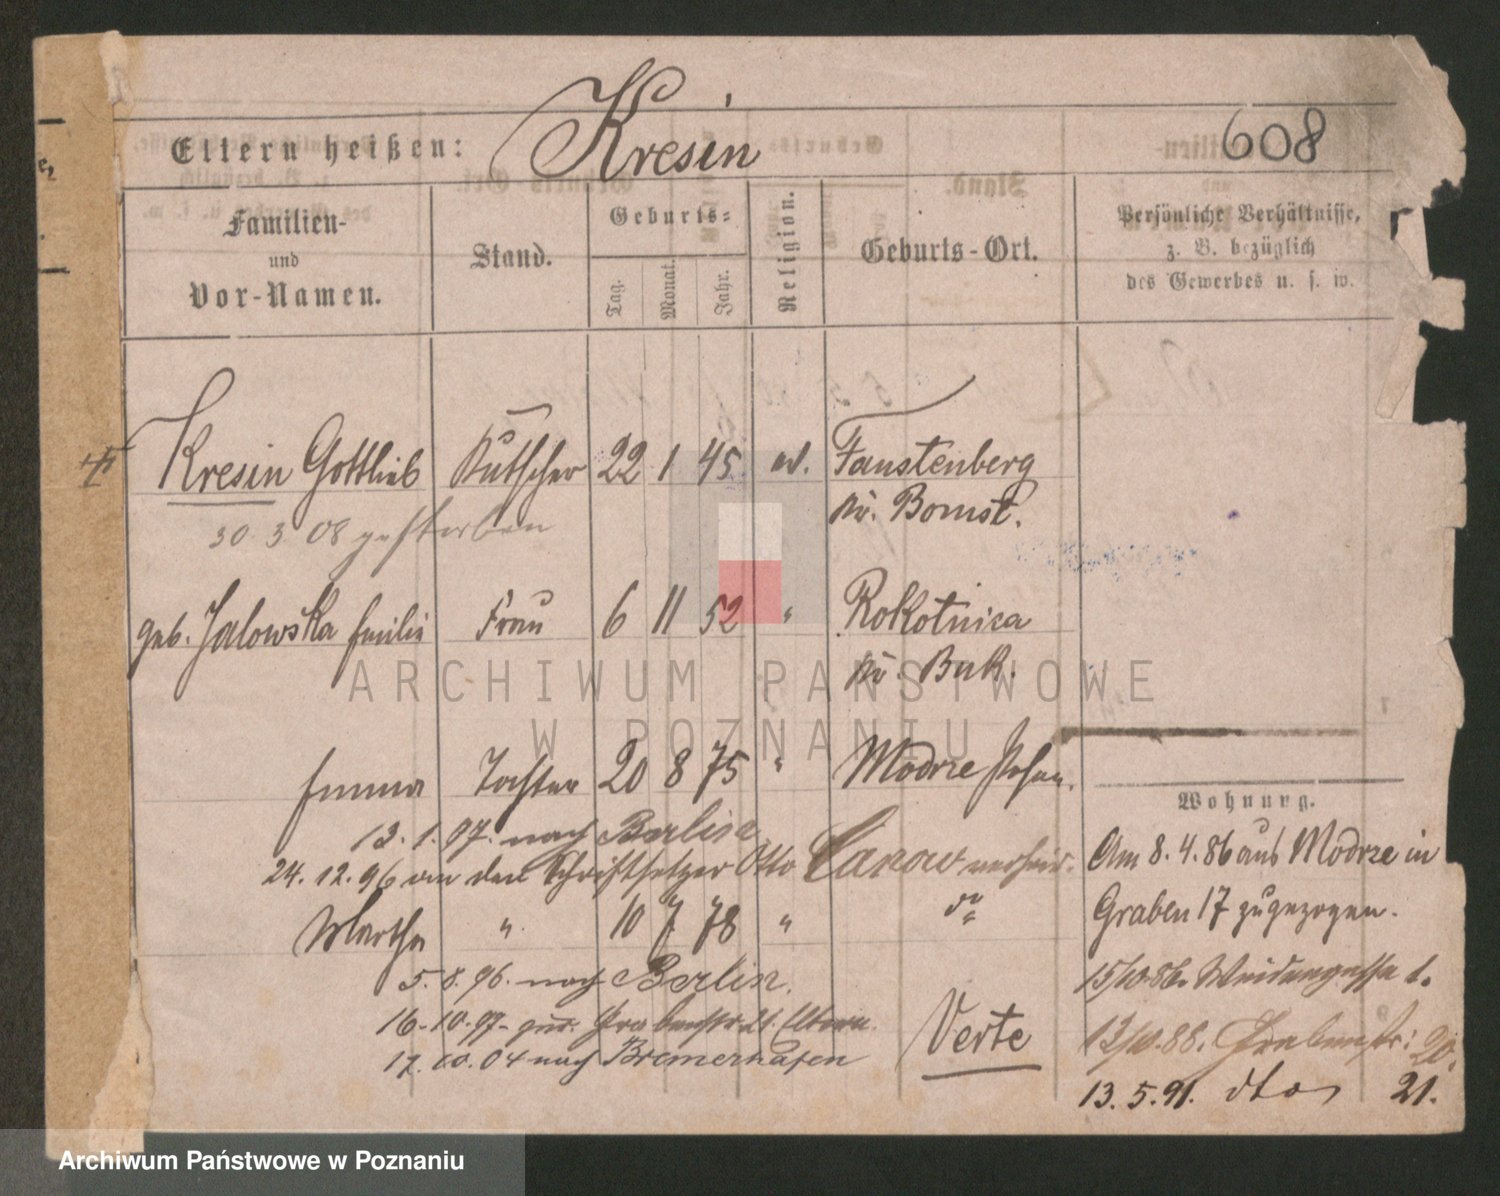 Kresin
608
Eltern heißen:
Familien-
und
Vor-Namen.
Stand.
Geburts-
Tag.
Monat.
Jahr.
Religion.
Geburts-Ort.
Persönliche Verhältnisse,
z. B. bezüglich
des Gewerbes u. s. w.
Kresin Gottlieb Kutscher 22 1 45 ev. Faustenberg
Kr. Bomst.
30 3 08 gestorben
geb. Jalowska Emilie Frau 6 11 52 " Rokotnica
Kr. Buk.
Emma Tochter 20 8 75 " Modrze Posen.
nach Berlin
24.12.96 an den Schriftsetzer Otto verheir.
Martha " 10 7 78 " do
5.8.96. nach Berlin.
16.10.97. zur. Grabenstr 21. Eltern.
nach Bremerhafen
Verte
Wohnung.
Am 8.4.86 aus Modrze in
Graben 17 zugezogen.
15/10 86. Weidengasse 1.
13/10.88. Grabenstr: 20.
13.5.91. dto 21.
ARCHIWUM PAŃSTWOWE
W POZNANIU
Archiwum Państwowe w Poznaniu